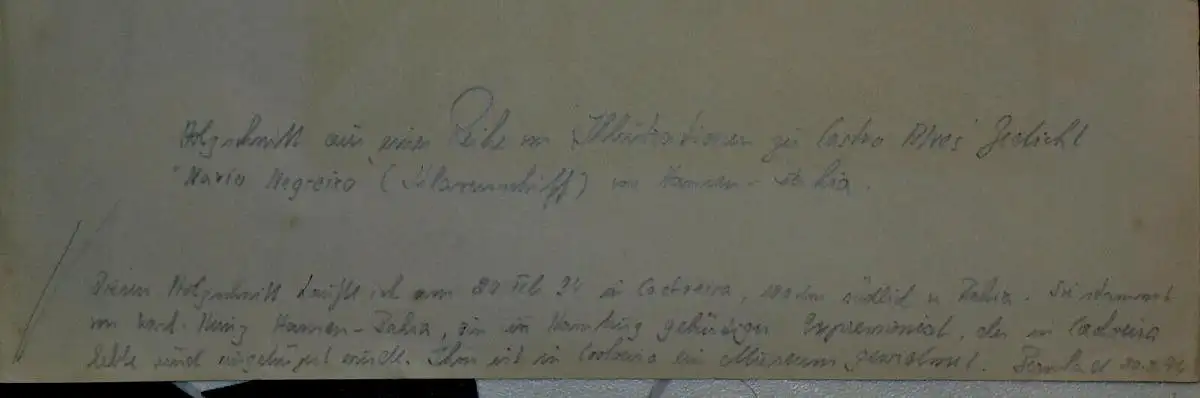 Holzschnitt aus einer Reihe von Illustrationen zu Castro Alves' Gedicht
"Navio Negreiro" (Sklavenschiff) von Hansen-Bahia.
Diesen Holzschnitt kaufte ich am Feb 94 in Cachoeira, 100 km südlich v. Bahia. Sie stammt
von Karl-Heinz Hansen-Bahia, ein in Hamburg gebürtiger Expressionist, der in Cachoeira
lebte und eingebürgert wurde. Ihm ist in Cachoeira ein Museum gewidmet.